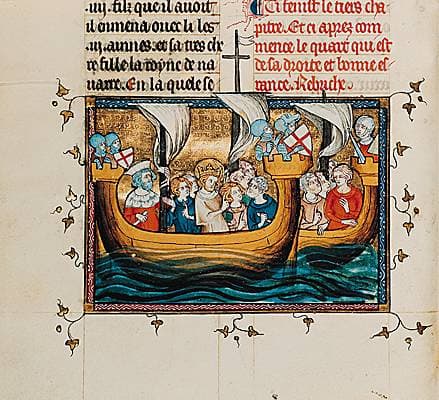 iiij. filz que il auoit
il enmena ouec li les
iij. ainnez. et sa tres chie
re fille la royne de na
uarre. En la quele se
Ci fenist le tiers cha
pitre. Et ci apres com
mence le quart qui est
de sa droite et bonne es
tance. Rebriche.